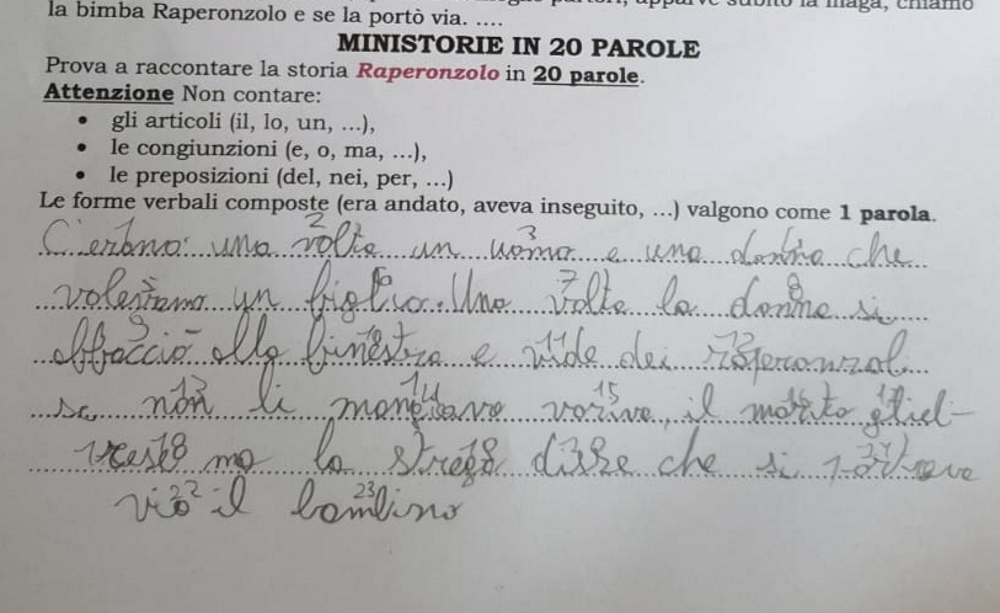 la bimba Raperonzolo e se la portò via. ....
MINISTORIE IN 20 PAROLE
Prova a raccontare la storia Raperonzolo in 20 parole.
Attenzione Non contare:
• gli articoli (il, lo, un, ...),
• le congiunzioni (e, o, ma, ...),
• le preposizioni (del, nei, per, ...)
Le forme verbali composte (era andato, aveva inseguito, ...) valgono come 1 parola.
C'erano una volta un uomo e una donna che
volevano un figlio. Una volta la donna si
affacciò alla finestra e vide dei raperonzoli
se non li mangiava moriva, il marito gliel
prese ma la strega disse che si portava
via il bambino